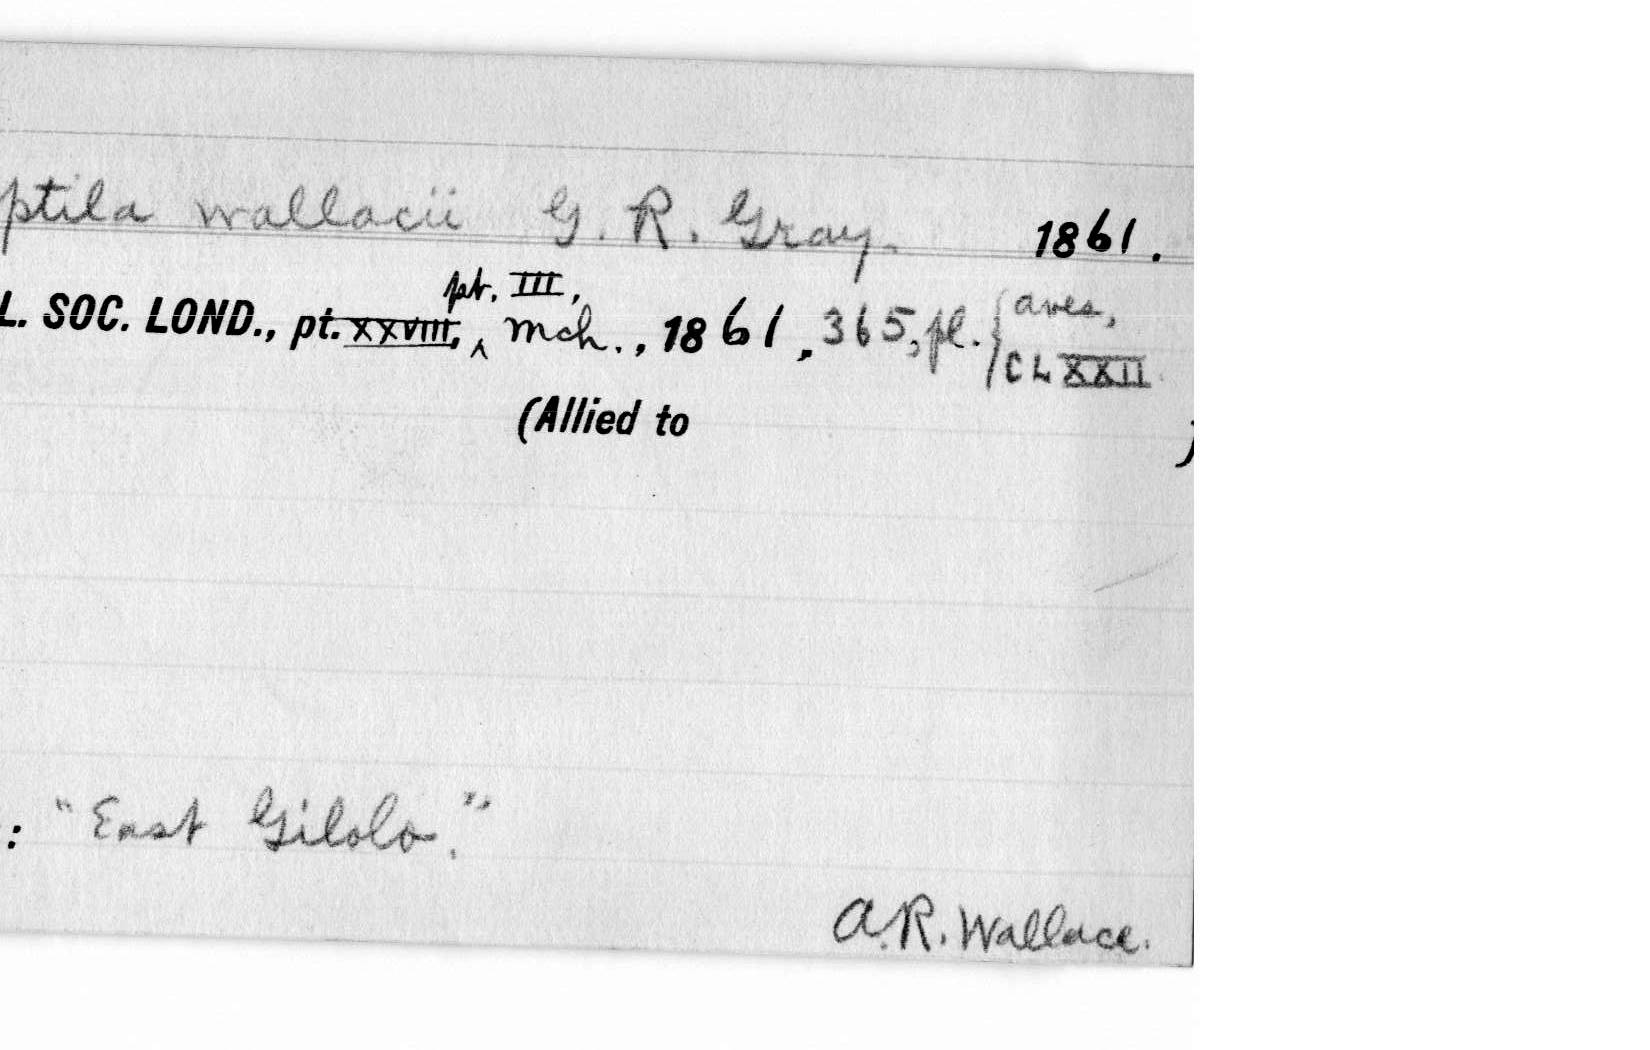 ptila wallacii G. R. Gray. 1861.
pt. III,
L. SOC. LOND., pt. XXVIII, ^ Mch., 1861, 365, pl. { aves,
CLXXII.
(Allied to )
: "East Gilolo."
A.R. Wallace.